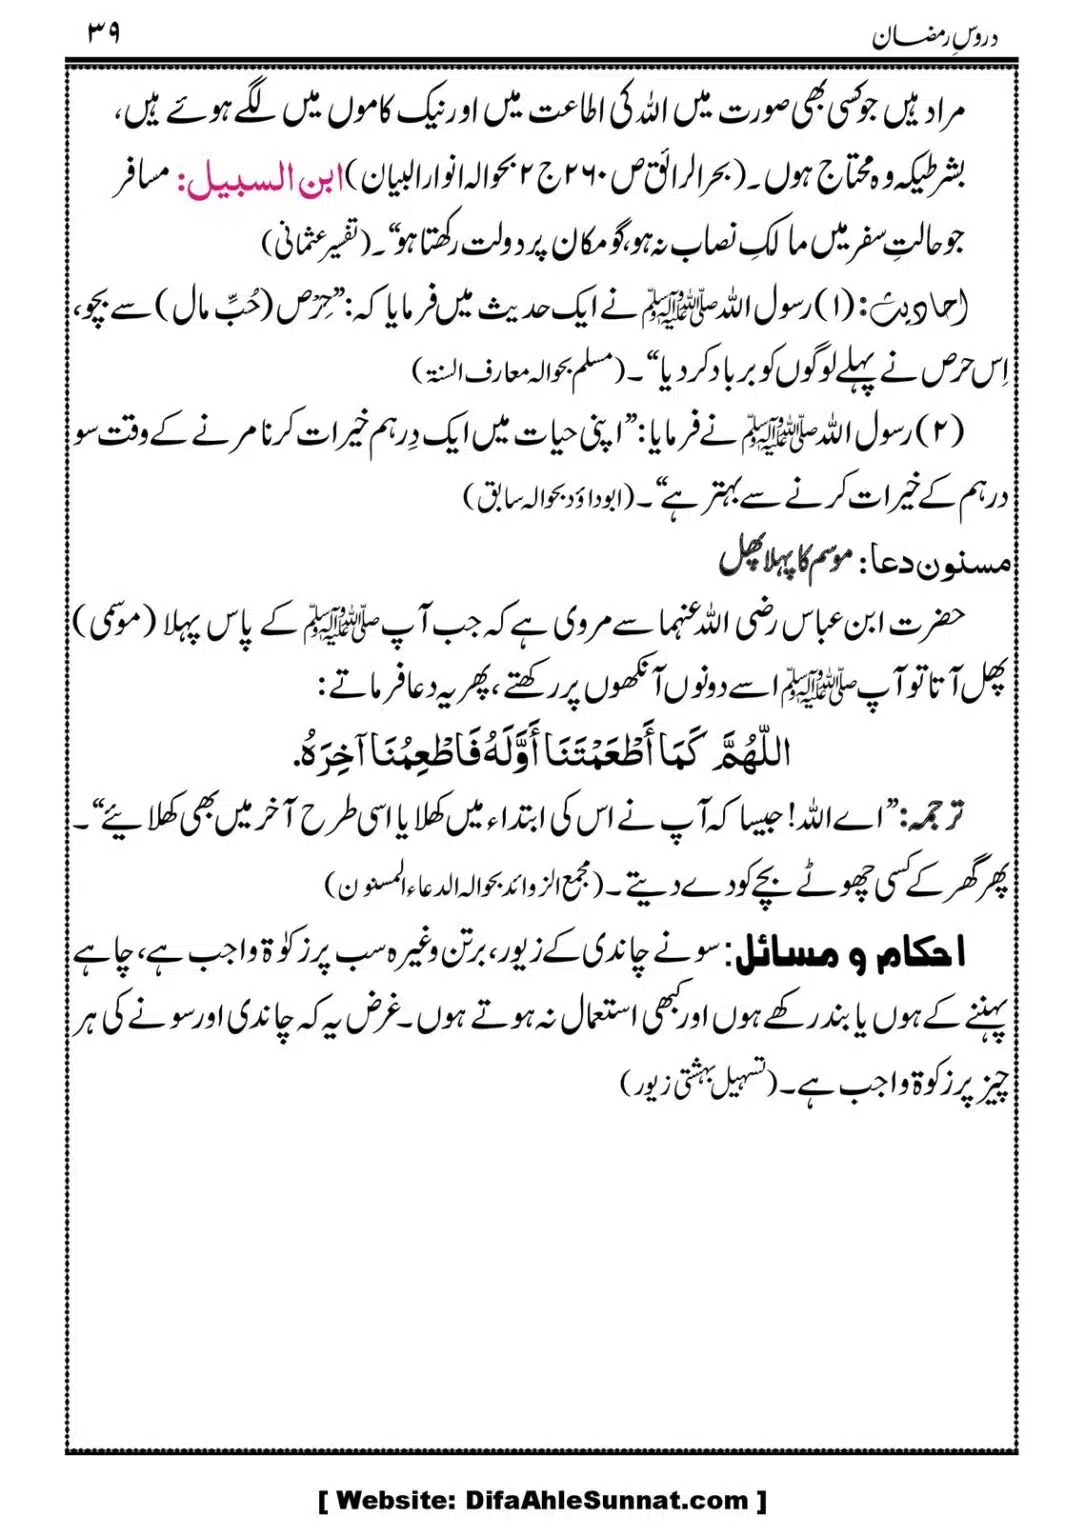 دروسِ رمضان ۳۹
مراد ہیں جو کسی بھی صورت میں اللہ کی اطاعت میں اور نیک کاموں میں لگے ہوئے ہیں،
بشرطیکہ وہ محتاج ہوں۔ (بحر الرائق ص ۲۶۰ ج ۲ بحوالہ انوار البیان) ابن السبیل: مسافر
جو حالتِ سفر میں مالکِ نصاب نہ ہو، گو مکان پر دولت رکھتا ہو“۔ (تفسیر عثمانی)
احادیث: (۱) رسول اللہ ﷺ نے ایک حدیث میں فرمایا کہ: ”حِرْص (حُبِّ مال) سے بچو،
اِس حرص نے پہلے لوگوں کو برباد کر دیا“۔ (مسلم بحوالہ معارف السنۃ)
(۲) رسول اللہ ﷺ نے فرمایا: ”اپنی حیات میں ایک دِرہم خیرات کرنا مرنے کے وقت سو
درہم کے خیرات کرنے سے بہتر ہے“۔ (ابوداؤد بحوالہ سابق)
مسنون دعا: موسم کا پہلا پھل
حضرت ابن عباس رضی اللہ عنہما سے مروی ہے کہ جب آپ ﷺ کے پاس پہلا (موسمی)
پھل آتا تو آپ ﷺ اسے دونوں آنکھوں پر رکھتے، پھر یہ دعا فرماتے:
اللّٰهُمَّ كَمَا أَطْعَمْتَنَا أَوَّلَهُ فَاطْعِمْنَا آخِرَهُ.
ترجمہ: ”اے اللہ! جیسا کہ آپ نے اس کی ابتداء میں کھلایا اسی طرح آخر میں بھی کھلایئے“۔
پھر گھر کے کسی چھوٹے بچے کو دے دیتے۔ (مجمع الزوائد بحوالہ الدعاء المسنون)
احکام و مسائل: سونے چاندی کے زیور، برتن وغیرہ سب پر زکوٰۃ واجب ہے، چاہے
پہننے کے ہوں یا بند رکھے ہوں اور کبھی استعمال نہ ہوتے ہوں۔ غرض یہ کہ چاندی اور سونے کی ہر
چیز پر زکوۃ واجب ہے۔ (تسہیل بہشتی زیور)
[ Website: DifaAhleSunnat.com ]